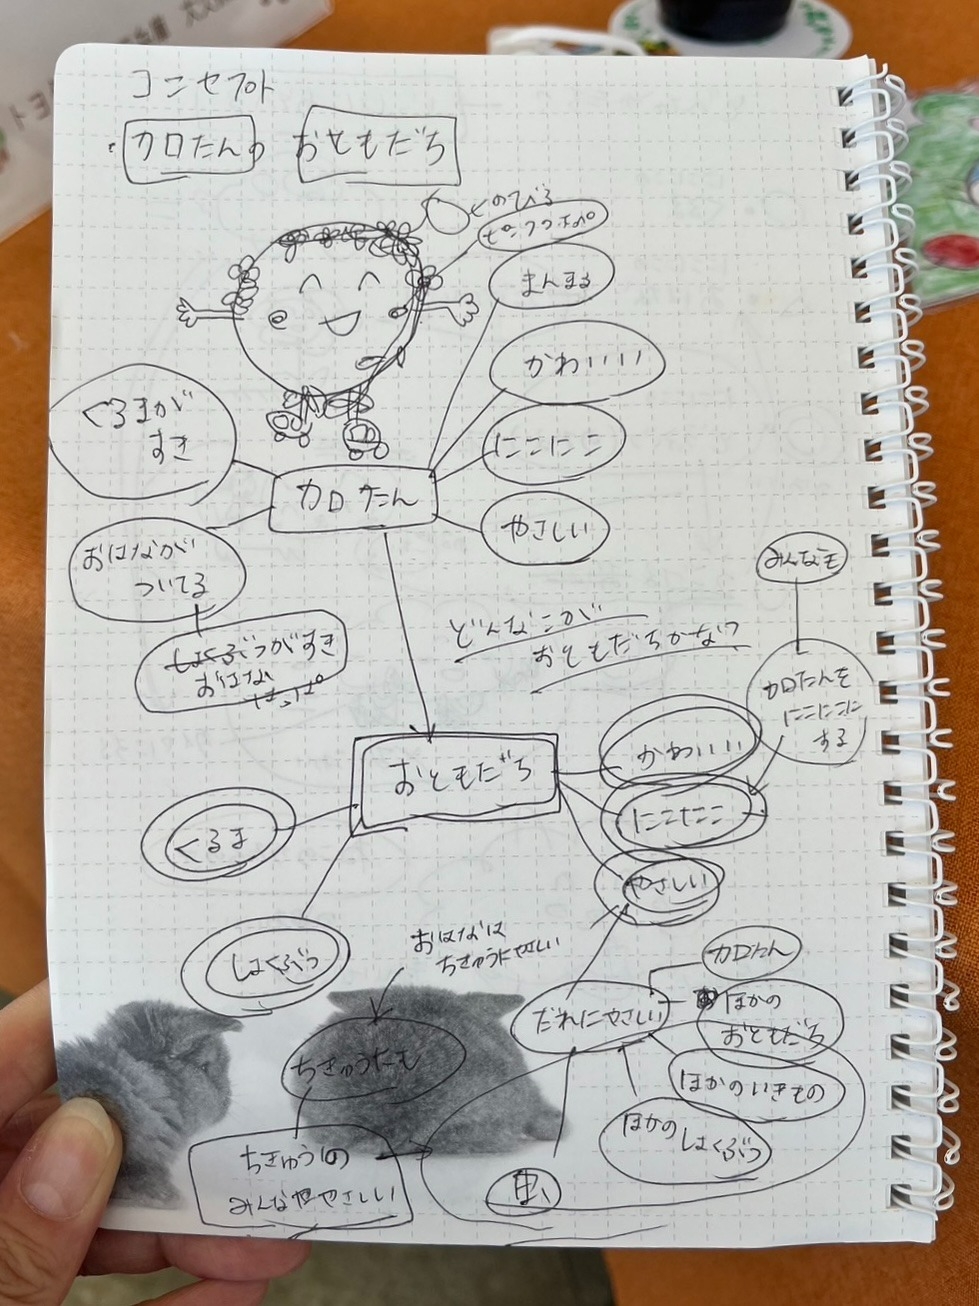 コンセプト
・カロたんの おともだち
くのびる
まんまる
かわいいい
くるまが
すき
にこにこ
カロたん
やさしい
おはなが
ついてる
みんなも
どんなこが
おともだちかな?
しょくぶつがすき
おはな
はっぱ
カロたんを
にこにこに
する
かわいい
おともだち
くるま
やさしい
おはなは
ちきゅうにやさしい
しょくぶつ
カロたん
だれにやさしい
ほかの
おともだち
ちきゅうにも
ほかのいきもの
ほかの しょくぶつ
ちきゅうの
虫